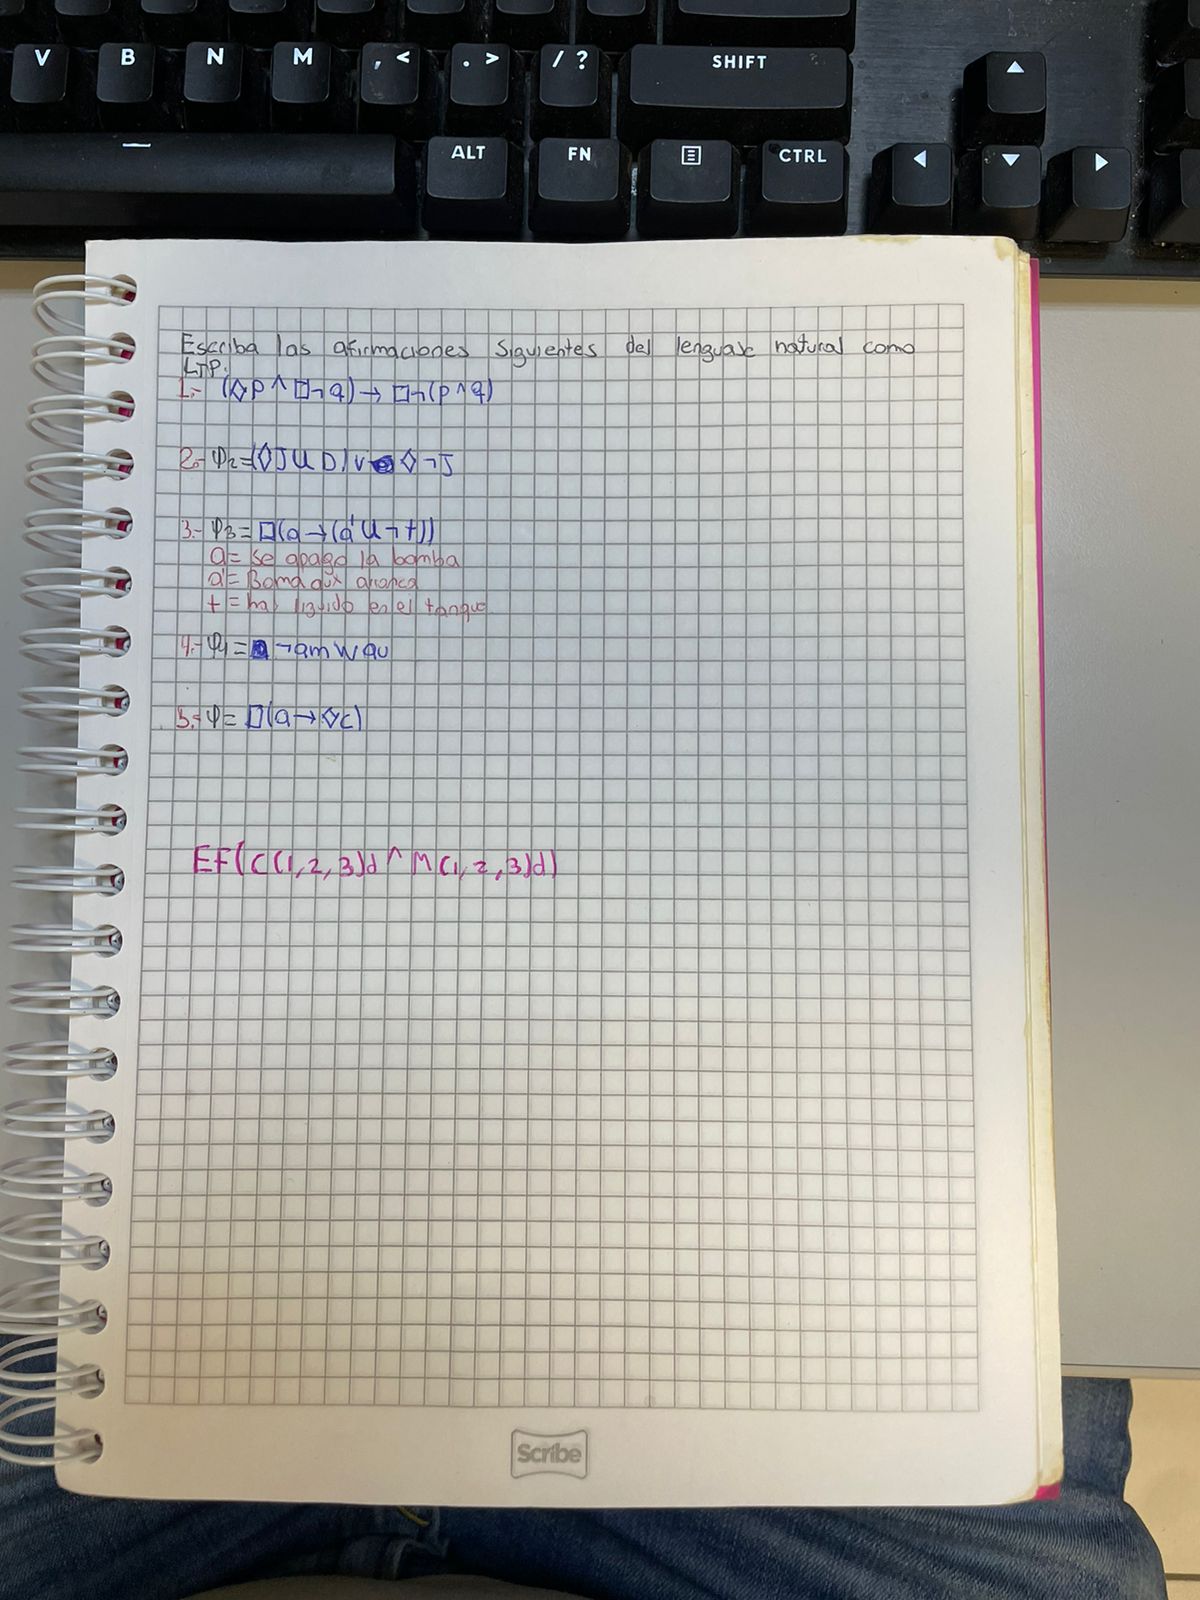 V B N M , < . > / ? SHIFT
ALT FN CTRL
Escriba las afirmaciones siguientes del lenguaje natural como
LTP.
1.- (◇p ∧ □¬q) → □¬(p ∧ q)
2.- φ2=(◇J U D) v ◇¬J
3.- φ3= □(a→(a' U ¬t))
a= se apago la bomba
a'= Boma aux aranca
t = hay liquido en el tanque
4.- φ4= ¬am W au
5.- φ= □(a→◇c)
EF(C(1,2,3)d ^ M(1,2,3)d)
Scribe